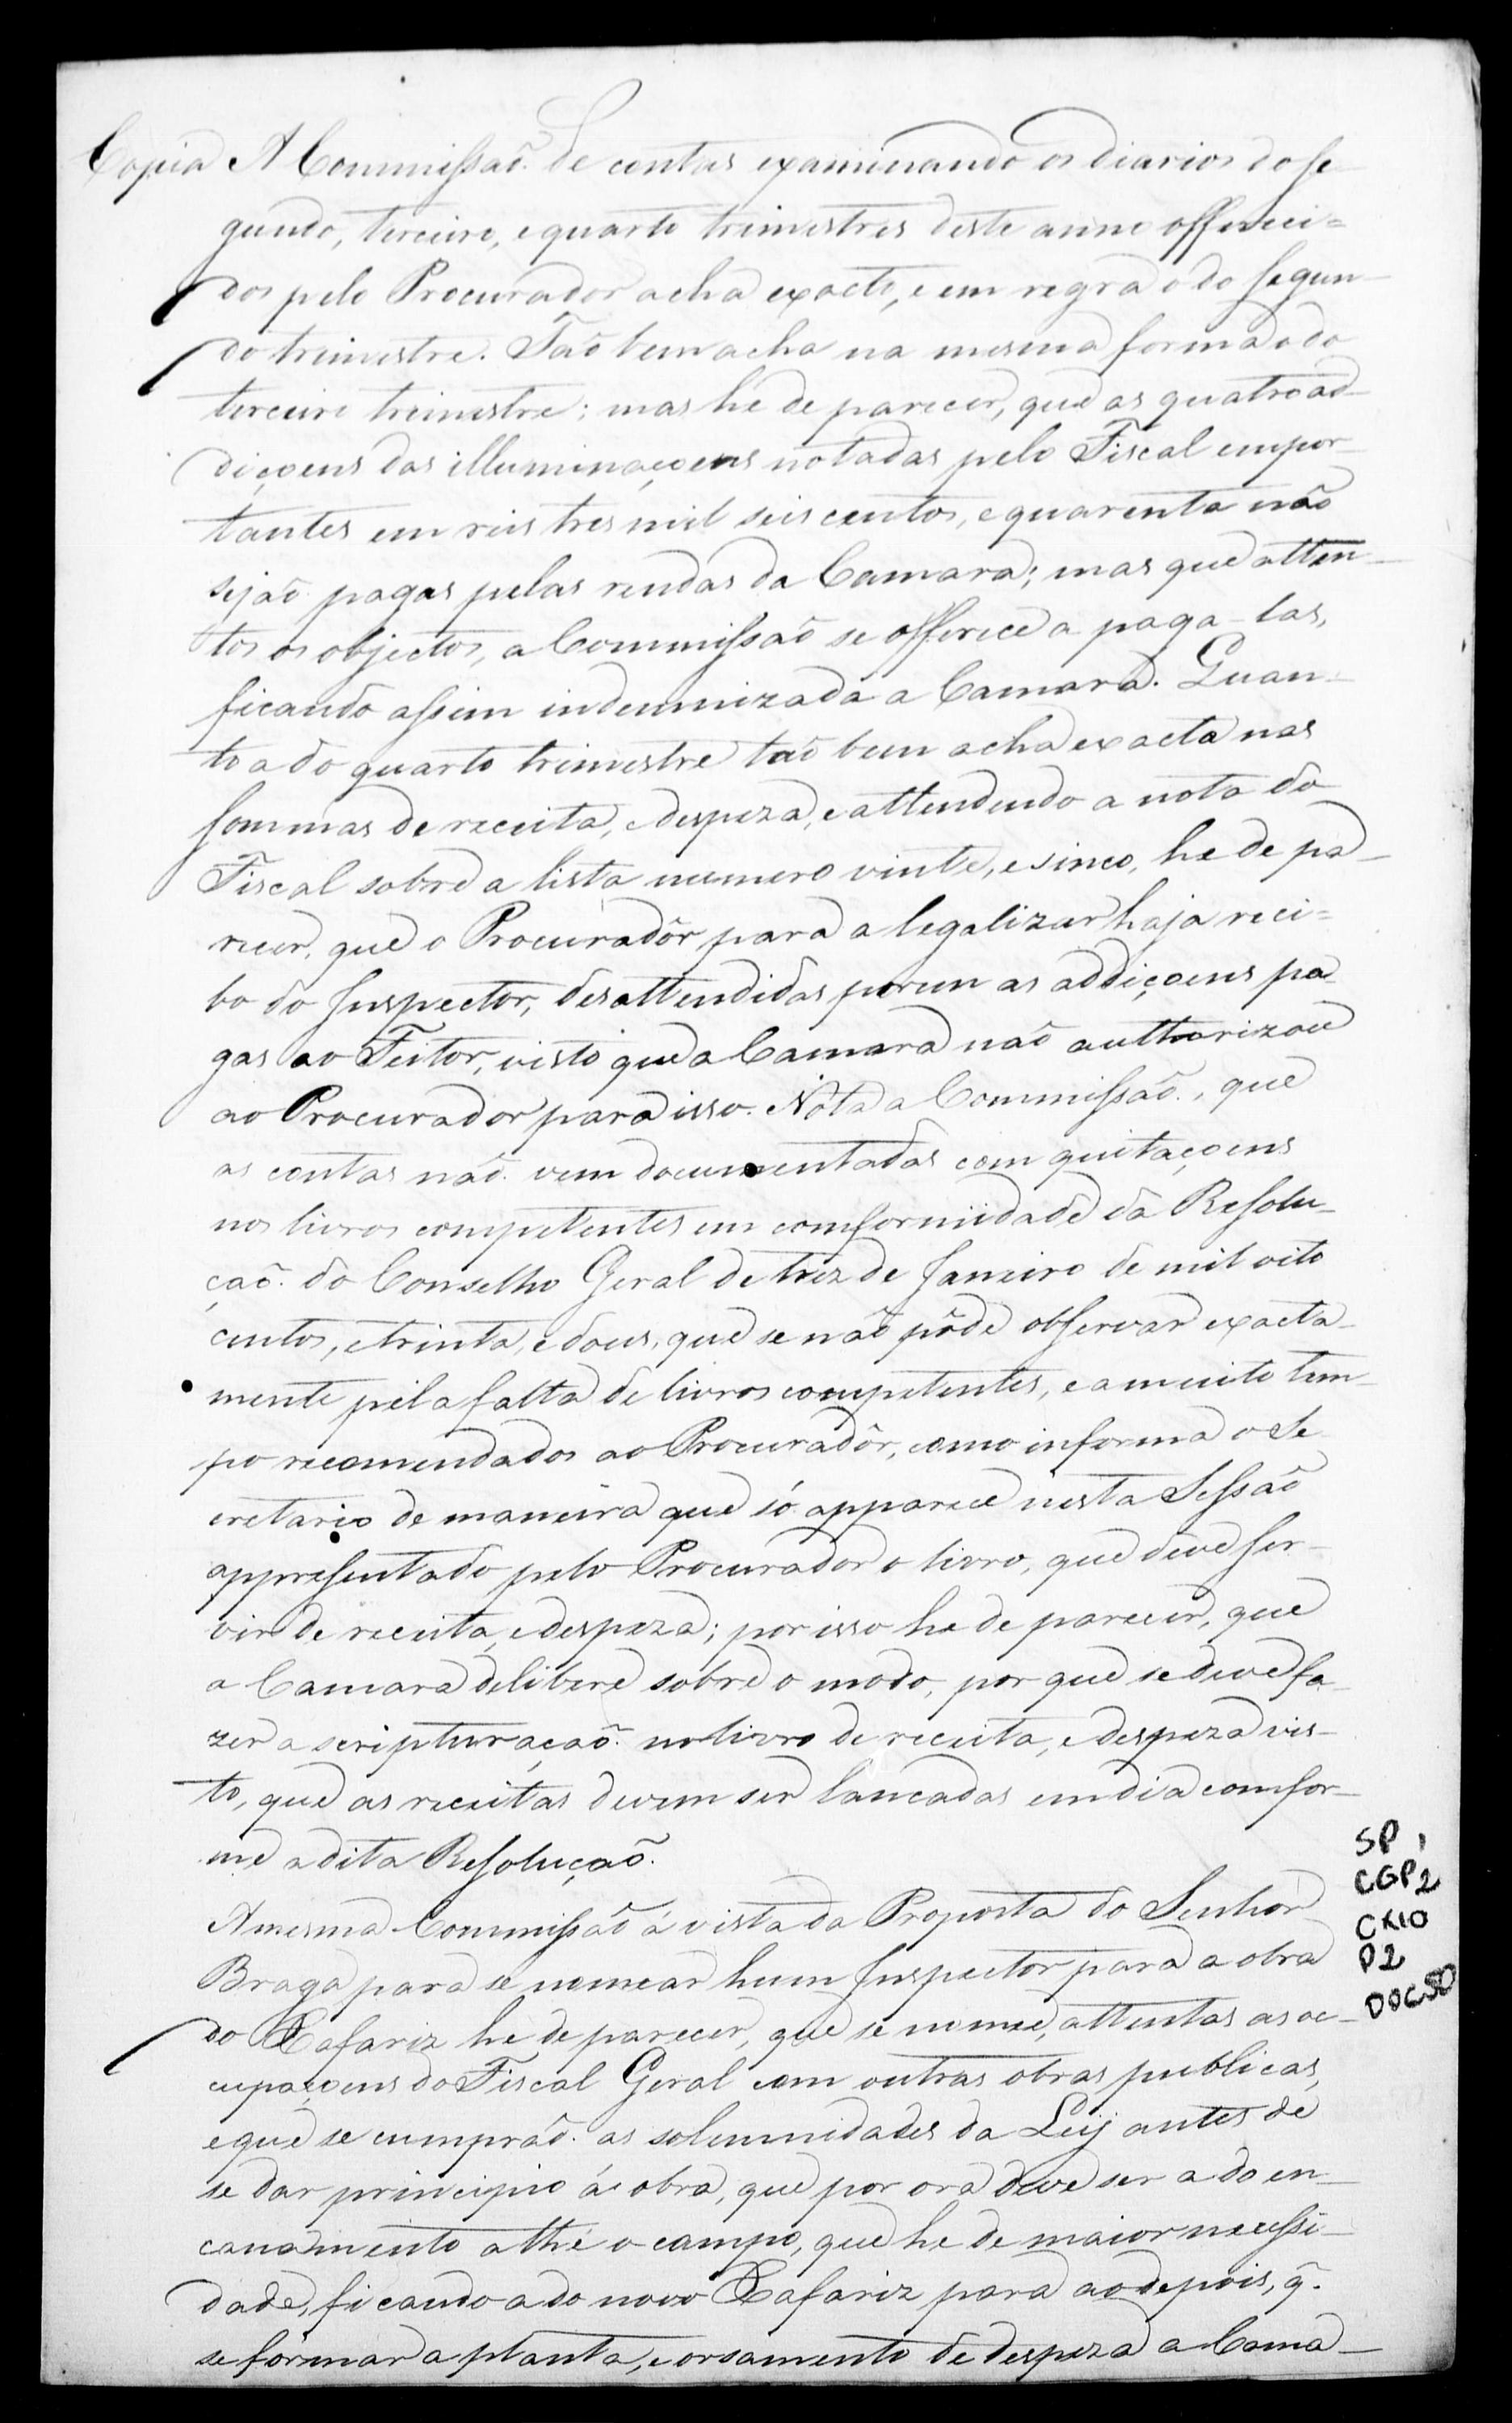 Copia A Commissaõ de contas examinando os diarios do se
gundo, terceiro, e quarto trimestres deste anno offereci=
dos pelo Procurador acha exacto, e em regra o do segun-
do trimestre. Taõ bem acha na mesma forma o do
terceiro trimestre; mas he de parecer, que as quatro ad-
diçoens das illuminaçoens notadas pelo Fiscal empor-
tantes em reis tres mil seis centos, e quarenta não
sejaõ pagas pelas rendas da Camara; mas que atten-
tos os objectos, a Commissaõ se offerece a paga-las,
ficando assim indemnizada a Camara. Quan-
to a do quarto trimestre taõ bem acha exacta nas
sommas de receita, e despeza, e attendendo a nota do
Fiscal sobre a lista numero vinte, e sinco, he de pa-
recer, que o Procuradôr para a legalizar haja reci=
bo do Inspector, desattendidas porem as addiçoens pa-
gas ao Feitor, visto que a Camara naõ authorizou
ao Procurador para isso. Nota a Commissaõ, que
as contas naõ vem documentadas com quitaçoens
nos livros competentes em comformidade da Resolu-
çaõ do Conselho Geral de trez de Janeiro de mil oito
centos, e trinta, e dous, que se naõ pôde observar exacta-
mente pela falta de livros competentes, e a muito tem-
po recomendados ao Procuradôr, como informa o Se
cretario de maneira que só apparece nesta Sessaõ
appresentado pelo Procurador o livro, que deve ser-
vir de receita, e despeza; por isso he de parecer, que
a Camara delibere sobre o modo, por que se deve fa-
zer a scripturaçaõ no livro de receita, e despeza vis-
to, que as receitas devem ser lancadas em dia comfor-
me a dita Resoluçaõ.
A mesma Commissaõ á vista da Proposta do Senhor
Braga para se nomear hum Inspector para a obra
do Xafariz he de parecer, que se nomee, attentas as oc-
cupaçoens do Fiscal Geral com outras obras publicas,
e que se cumpraõ as solemnidades da Ley antes de
se dar principio á obra, que por ora deve ser a do en-
canamento athé o campo, que he de maior necessi-
dade, ficando a do novo Xafariz para ao depois, q̃
se formar a planta, e orsamento de despeza a Cama-
SP 1
CGP2
CX10
P2
DOC50